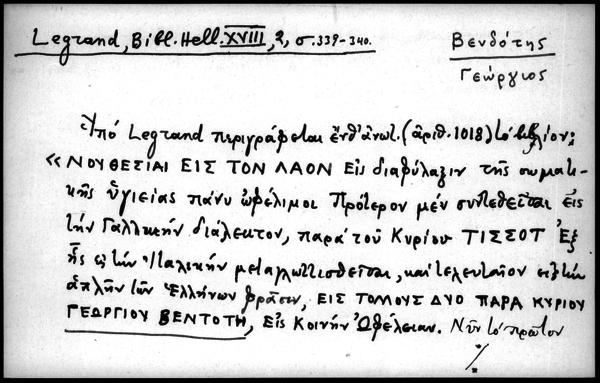 Legrand, Bibl. Hell. XVIII, 2, σ. 339-340.
Βενδότης
Γεώργιος
Ὑπό Legrand περιγράφεται ἔνθ' ἀνωτ. (ἀριθ. 1018) τό βιβλίον:
«ΝΟΥΘΕΣΙΑΙ ΕΙΣ ΤΟΝ ΛΑΟΝ Εἰς διαφύλαξιν τῆς σωματι-
κῆς ὑγιείας πάνυ ὠφέλιμοι Πρότερον μέν συντεθεῖσαι εἰς
τήν Γαλλικήν διάλεκτον, παρά τοῦ Κυρίου ΤΙΣΣΟΤ Ἐξ
ἧς εἰς τήν Ἰταλικήν μεταγλωττισθεῖσαι, καί τελευταῖον εἰς τήν
ἁπλῆν τῶν Ἑλλήνων φράσιν, ΕΙΣ ΤΟΜΟΥΣ ΔΥΟ ΠΑΡΑ ΚΥΡΙΟΥ
ΓΕΩΡΓΙΟΥ ΒΕΝΤΟΤΗ, Εἰς Κοινήν Ὠφέλειαν. Νῦν τό πρῶτον
·/·